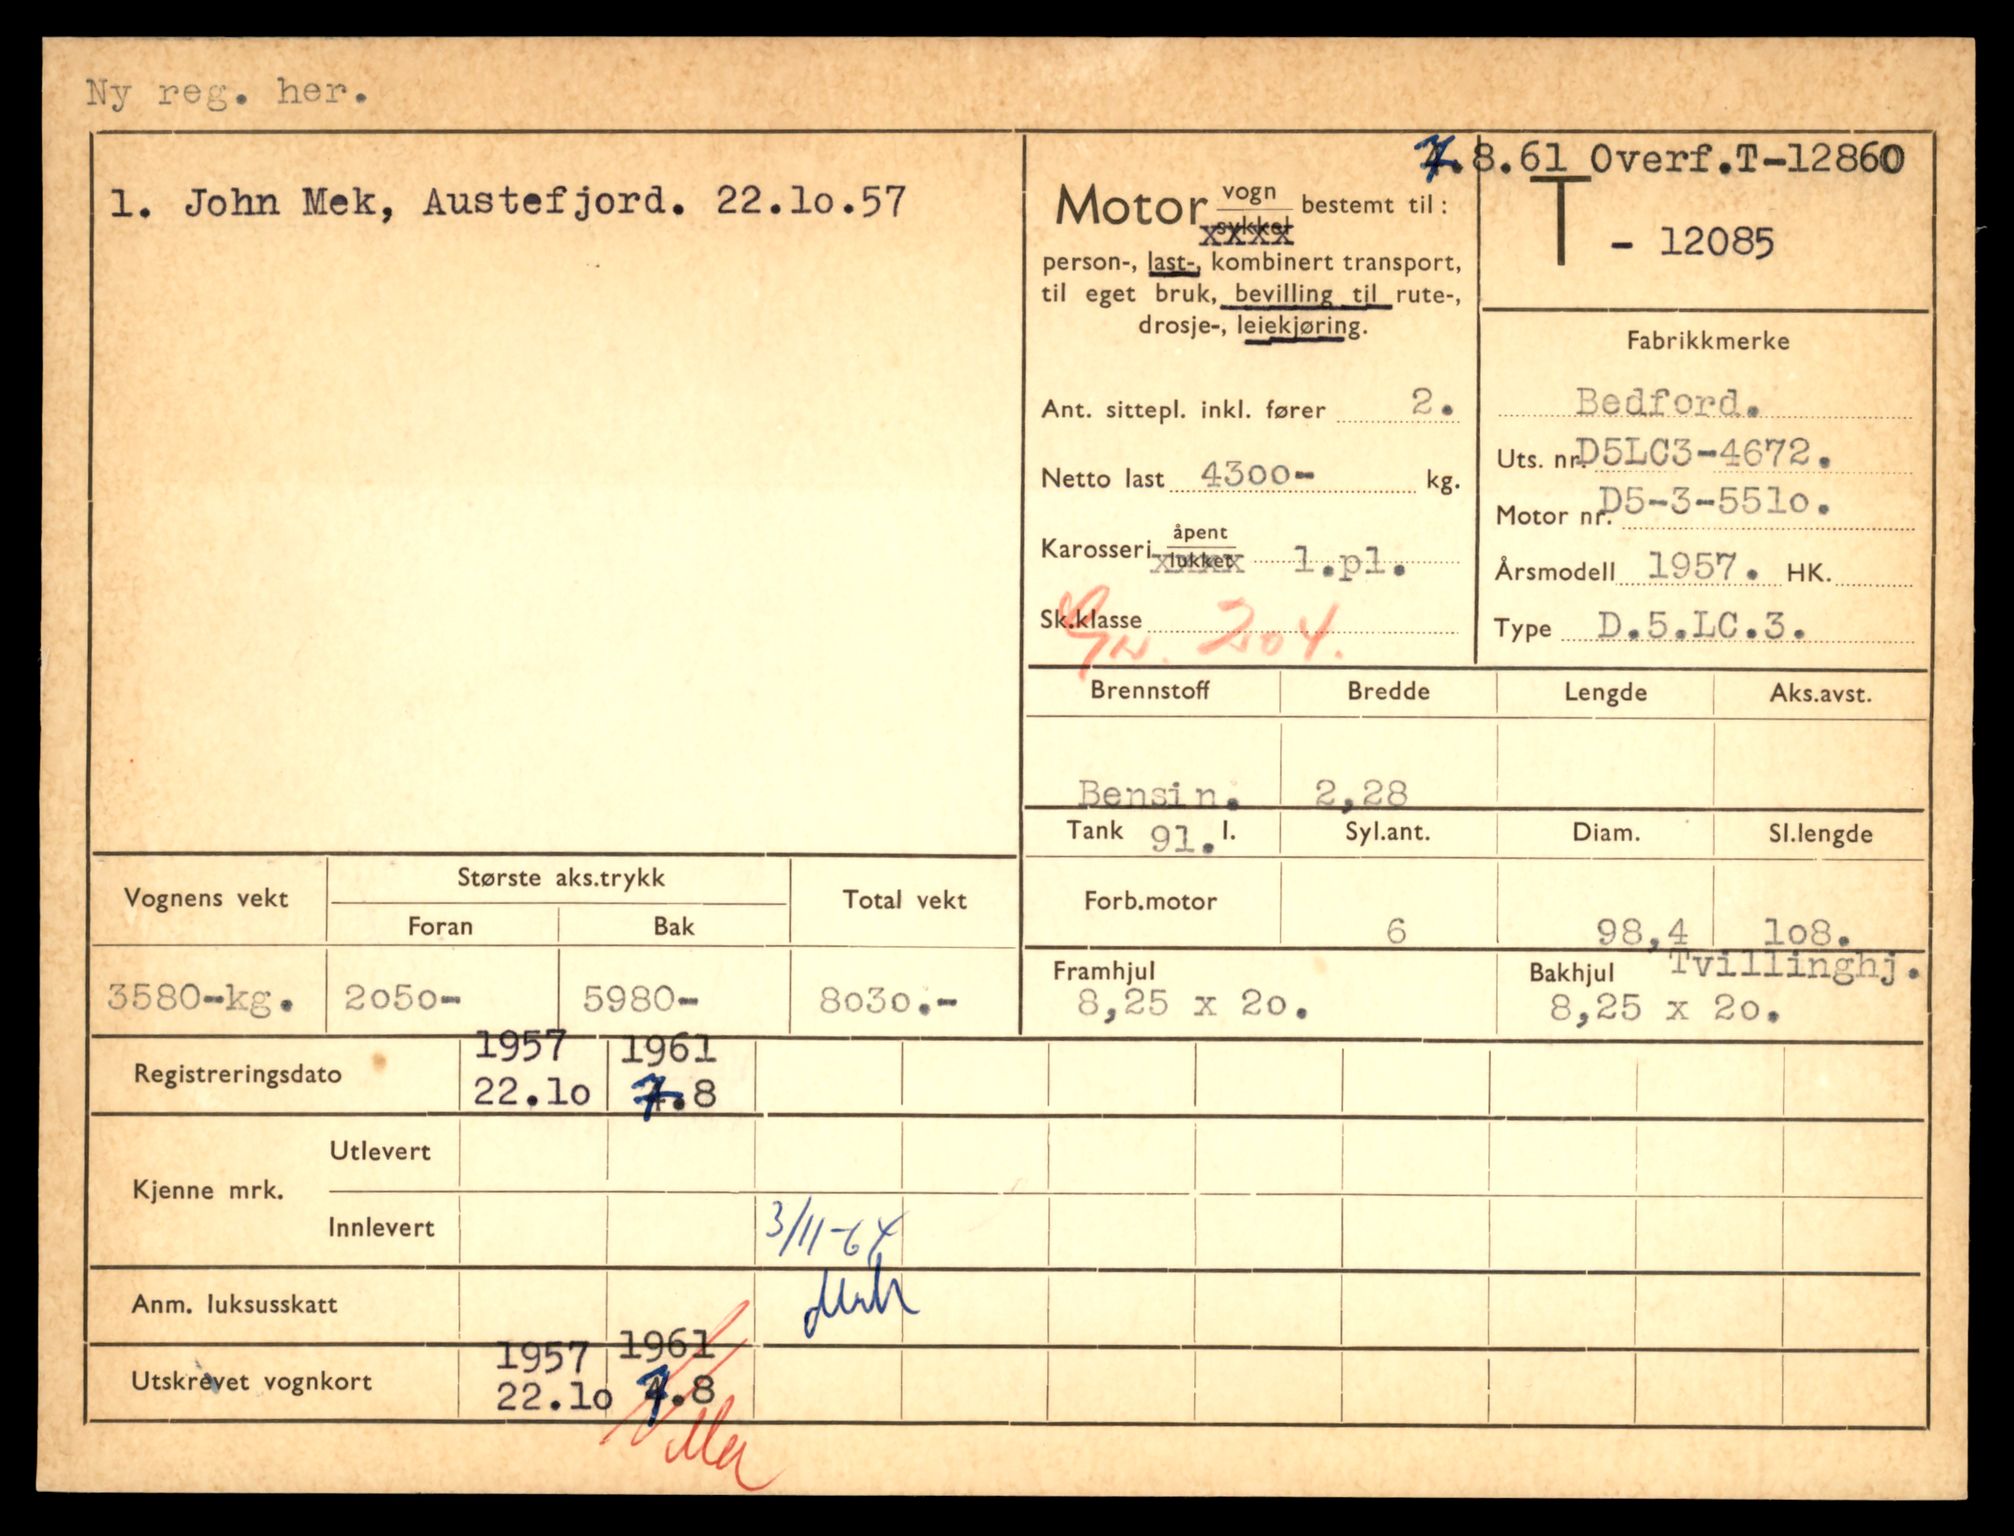 Ny reg. her.
1. John Mek, Austefjord. 22.10.57
7.8.61 Overf.T-12860
Motor vogn sykkel bestemt til:
person-, last-, kombinert transport,
til eget bruk, bevilling til rute-,
drosje-, leiekjøring.
T - 12085
Ant. sittepl. inkl. fører 2.
Netto last 4300- kg.
Karosseri åpent lukket l.pl.
Sk.klasse 204.
Fabrikkmerke
Bedford.
Uts. nr. D5LC3-4672.
Motor nr. D5-3-5510.
Årsmodell 1957. HK.
Type D.5.LC.3.
Brennstoff Bredde Lengde Aks.avst.
Bensin. 2,28
Tank 91. l. Syl.ant. Diam. Sl.lengde
Forb.motor 6 98,4 108.
Framhjul Bakhjul Tvillinghj.
8,25 x 20. 8,25 x 20.
Vognens vekt Største aks.trykk Total vekt
Foran Bak
3580-kg. 2050- 5980- 8030.-
1957 1961
Registreringsdato 22.10 7.8
Kjenne mrk. Utlevert
Innlevert 3/11-64
Anm. luksusskatt
1957 1961
Utskrevet vognkort 22.10 7.8